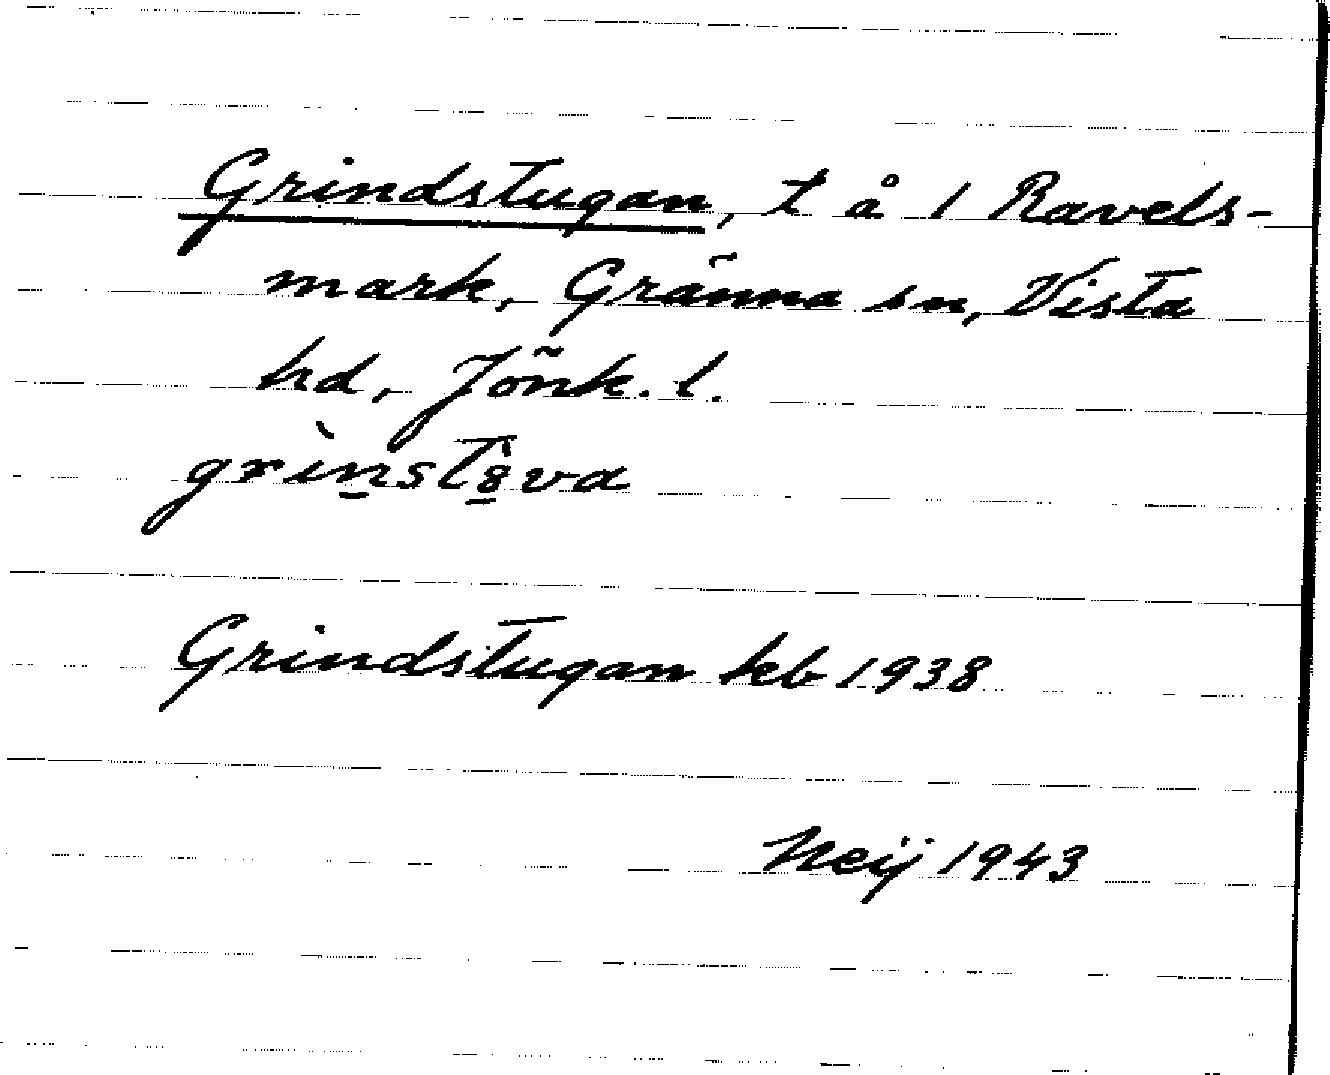 Grindstugan, t å 1 Ravels-
mark, Gränna sn, Vista
hd, Jönk. l.
grìnst8̂va
Grindstugan kb 1938
Neij 1943